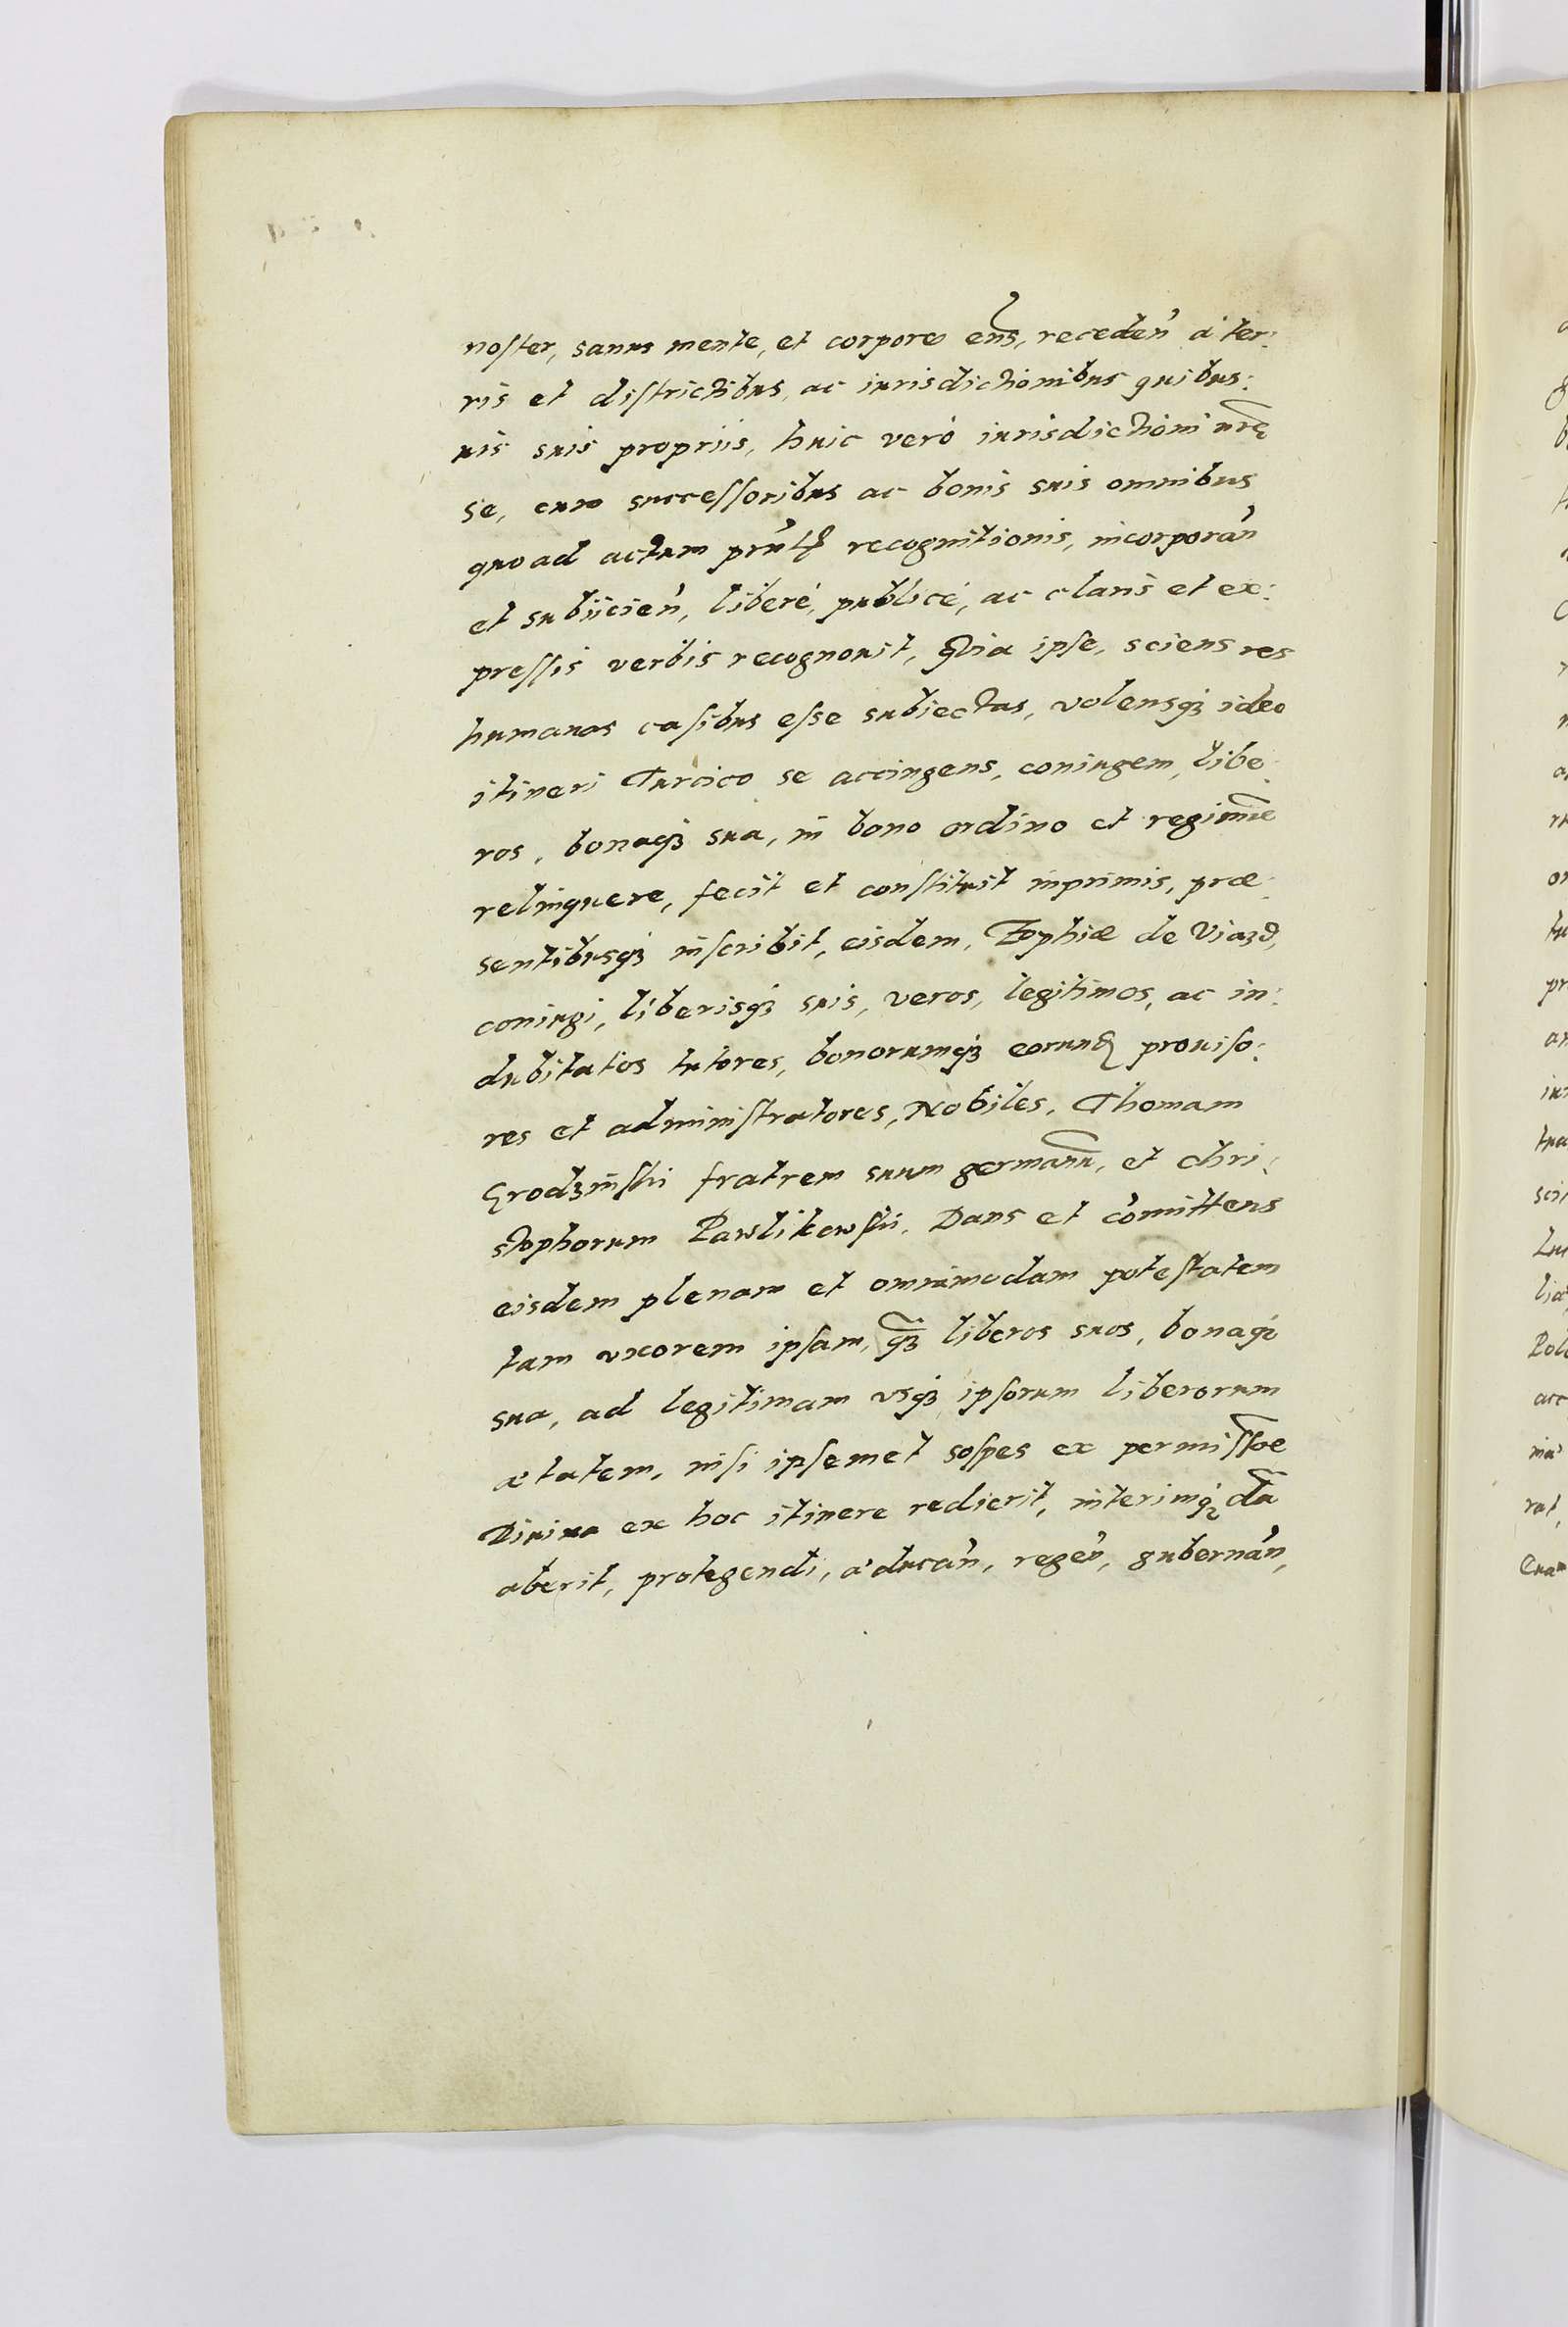 noſter, sanus mente, et corpore eñs, receden̉ à ter:
ris et diſtrictibus, ac iurisdictionibus quibus:
uis suis propriis, huic verò iurisdictioni nrę
se, cum succeſſoribus ac bonis suis omnibus
quo ad actum recognitionis, incorporan̉
et subiicien̉, liberè, publicè, ac claris et ex:
preſſis verbis recognouit, Quia ipſe, sciens res
humanas caſibus eſse subiectas, volensq3 ideo
itineri Turcico se accingens, coniugem, libe:
ros, bonaq3 sua, in bono ordine et regimīe
relinquere, fecit et conſtituit inprimis, præ:
sentibusq3 inſcribit, eisdem, Zophiæ de Viazd,
coniugi, liberisq3 suis, veros, legitimos, ac in:
dubitatos tutores, bonorumq3 eorund prouiſo:
res et adminiſtratores, Nobiles, Thomam
Grodzinſkii fratrem suum germanū, et Chri:
ſtophorum Pawlikowſkii. Dans et com̉ittens
eisdem plenam et omnimodam poteſtatem
tam vxorem ipſam, q̃3 liberos suos, bonaq3
sua, ad legitimam vsq3 ipſorum liberorum
ætatem, niſi ipſemet soſpes ex permiſſoe
Diuina ex hoc itinere redierit, interimq3 dū
aberit, protegendi, aducan̉, regen̉, gubernan̉,